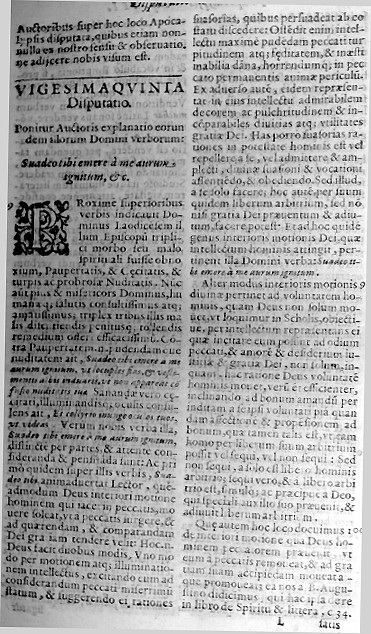 Auctoribus super hoc loco Apoca
lypsis disputata, quibus etiam non-
nulla ex nostro sensu & obseruatio,
ne adijcere nobis visum est.
VIGESIMAQVINTA
Disputatio.
Ponitur Auctoris explanatio eorun
dem illorum Domini verborum
Suadeo tibi emere à me aurum
ignitum, &c.
9 PRoxime superioribus
verbis indicauit Do-
minus Laodicesem il
lum Episcopũ tripli
ci morbo seu malo
spirituali fuisse obno
xium, Paupertatis, & Cęcitatis, &
turpis ac probrosæ Nuditatis. Nũc
aut pius & misericors Dominus, hu
mana salutis consultissimus atq;
amantissimus, triplex tribus illis ma
lis
remedium offert efficacissimũ. Cõ
tra Paupertatim
nuditatem ait, Suadeo tibi emere à me
aurum ignitum vt locuples fias, & vesti
mentis albis induaris, vt non appareat cõ
fusio nuditatis tuæ. Sanandæ vero cę-
citati, illuminandisq; oculis consu-
lens ait, Et collyrio inunge oculos tuos,
vt videas. Verum nobis verba illa,
Suadeo tibi emere à me aurum ignitum,
distincte per partes, & attente con-
sideranda & pensanda sunt: Ac pri
mõ quidem super illis verbis, Sua-
deo tibi, animaduertat Lector, que-
admodum Deus interiori motione
hominem qui iacet in peccatis, mo
uere soleat, vt a peccatis surgere, &
ad quærendam, & comparandam
Dei gratiam tendere velit: Hoc au
Deus facit duobus modis, Vno mo
do per motionem atq; illuminatio-
nem intellectus, excitando eum ad
considerandum peccati miserrimũ
statum, & suggerendo ei rationes
suasorias, quibus persuadeat ab eo
statu discedere: Ostẽdit enim intel-
lectui maximè pudẽdam peccati tur
pitudinem atq; fęditatem, & inæsti-
mabilia dãna, horrendumq; in pec-
cato permanentis animæ periculũ.
Ex aduerso autẽ, eidem repræsen-
tat in eius intellectu admirabilem
decorem, ac pulchritudinem & in-
cõparabiles diuitias atq; vtilitates
gratiæ Dei. Has porro suasorias ra
tiones in potestate hominis est vel
repellere a se, vel admittere & am-
plecti, diuinæ suasioni & vocationi
assentiẽdo, & obediendo. Sed illud,
a se solo facere, hoc autẽ per suum
quidem liberum arbitrium, sed nõ
nisi gratia Dei præuentum & adiu-
tum, facere potest: Et ad hoc quidẽ
genus interioris motionis Dei, quæ
intellectum hominis attingit, per-
tinent illa Domini verba: Suadeo ti-
bi emere à me aurum ignitum.
Alter modus interioris motionis 9
diuinæ pertinet ad voluntatem ho-
minis, quam Deus non solum mo-
uet, vt loquimur in Scholis, obiecti-
ue, per intellectum repræsentans ei
quæ incitare eum possint ad odium
peccati, & amorẽ & desiderium iu-
stitiæ & gratiæ Dei, nec solum, in-
quam, hac ratione Deus voluntatẽ
hominis mouet, verũ & efficienter,
inclinando ad bonum amandũ per
inditam a se ipsi voluntati piã quan
dam affectionẽ & propẽsionem ad
bonum, quæ tamen talis est, vt eam
homo per ipsum suum arbitrium
possit vel sequi, vel non sequi: Sed
non sequi, a solo est libero hominis
arbitrio; sequi verò, & a libero arbi
trio est, simulq; ac præcipue a Deo,
qui speciali auxilio suo præuenit, &
adiuuit liberum arbitrium.
Quę autem hoc loco docuimus 10
de interiori motione qua Deus ho-
minem peccatorem præuenit, vt
eum à peccatis remoueat, & ad gra
tiam suam accipiẽdam moueat a-
que promoueat; ea nos a B. Augu-
stino didicimus, qui hæc ipsa docet
in libro de Spiritu & littera, c. 34.
L satis